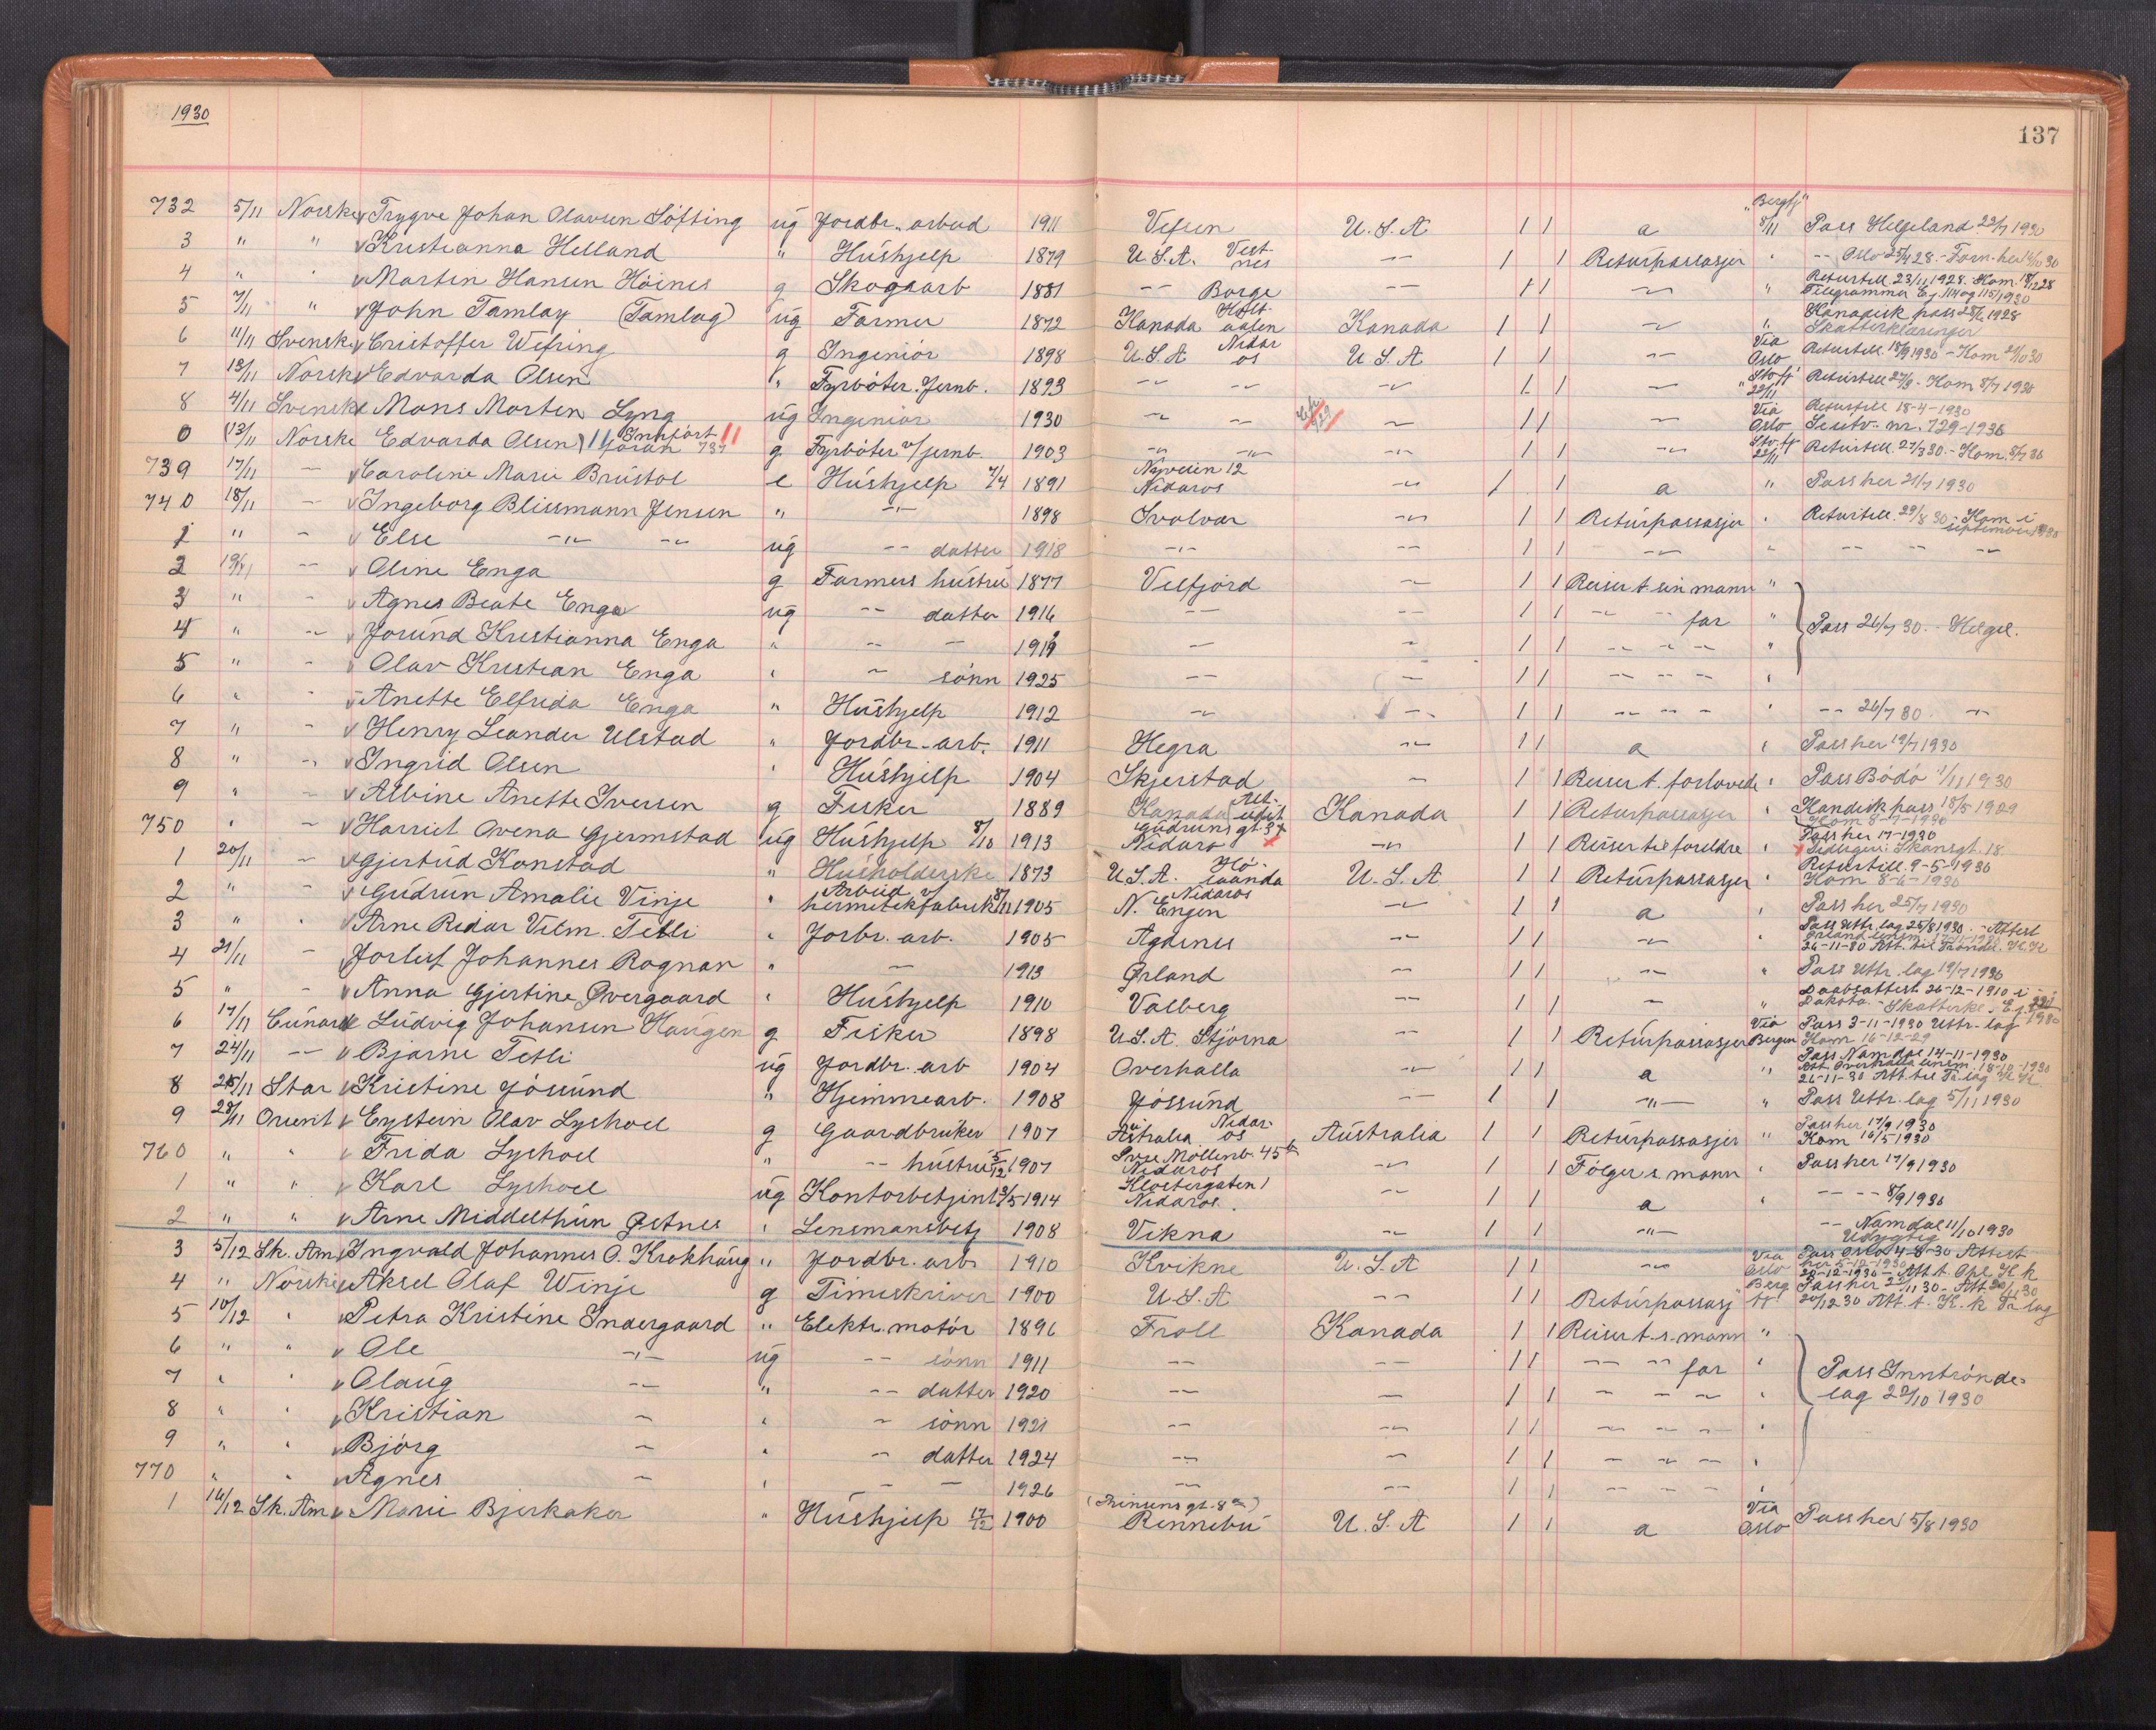 1930
137
732 5/11 Norske Trygve Johan Olavsen Söfting ug Jordbr. arbeid 1911 Vefsn U.S.A 1 1 a "Bergfj" 8/11 Pass Helgeland 22/7 1930
3 " " Kristianna Helland " Húshjelp 1879 U.S.A. Vestnes -"- 1 1 Retúrpassasjer " -"- Oslo
4 " " Martin Hansen Höines g Skogsarb 1881 -"- Borge -"- 1 1 -"- " Returtill. 23/11 1928. Kom. 18/12 28 Telegramma Ej. 114 og 115/1930
5 7/11 " John Tamlay (Tamlag) ug Farmer 1872 Kanada Kanada 1 1 -"- " Kanadisk pass 28/6 1928
6 11/11 Svenske Cristoffer Wefring g Ingeniör 1898 U.S.A Nidaros U.S.A 1 1 -"- Via Oslo Returtill. 18/9 1930 - Kom
7 13/11 Norske Edvarda Olsen " Fyrböter. Jernb. 1893 -"- -"- -"- 1 1 -"- 22/11 Retúrtill - Kom 8/7 1930
8 4/11 Svenske Mons Morten Lyng ug Ingeniör 1930 -"- -"- -"- 1 1 -"- Via Oslo Returtill 18-4-1930 nr. 729-1936
0 (13/11 Norske Edvarda Olsen) Innfört foran 737 g Fyrböter v/jernb. 1903 -"- -"- -"- 1 1 -"- 22/11 Retúrtill. 27/3 30. - Kom. 8/7 30
739 17/11 -"- Caroline Marie Brústol e Húshjelp 7/4 1891 Nyveien 12 Nidaros -"- 1 1 a " Pass her 21/7 1930
740 18/11 -"- Ingeborg Blissmann Jensen " -"- 1898 Svolvær -"- 1 1 Retúrpassasjer " Returtill. 29/8 30 - Kom i september 1930
1 " -"- Else -"- -"- ug -"- datter 1918 -"- -"- 1 1 -"- " -"- -"- -"-
2 19/11 -"- Oline Enga g Farmers hústrú 1877 Velfjord -"- 1 1 Reiser t. sin mann "
3 " -"- Agnes Beate Enga ug -"- datter 1916 -"- -"- 1 1 -"- -"- far " Pass 26/7 30. - Helgel.
4 " -"- Jorúnd Kristianna Enga " -"- -"- 1919 -"- -"- 1 1 -"- -"- -"- "
5 " -"- Olav Kristian Enga " -"- sönn 1925 -"- -"- 1 1 -"- -"- -"- "
6 " -"- Anette Elfrida Enga " Húshjelp 1912 -"- -"- 1 1 -"- -"- -"- " -"- 26/7 30. -"-
7 " -"- Henry Leander Ulstad " Jordbr. arb. 1911 Hegra -"- 1 1 a " Pass her 19/7 1930
8 " -"- Ingrid Olsen " Húshjelp 1904 Skjerstad -"- 1 1 Reiser t. forlovede " Pass Bodö 1/11 1930
9 " -"- Albine Anette Iversen g Fisker 1889 Kanada Kanada 1 1 Retúrpassasjer " Kandisk pass 18/5 1929 Kom 8-7-1930
750 " -"- Harriet Ovena Gjermstad ug Húshjelp 8/10 1913 Gúdruns gt. 34 Nidaro -"- 1 1 Reiser til foreldre " Pass her Skansgt. 18.
1 20/11 -"- Gjertrúd Konstad " Húsholderske 1873 U.S.A. Hölanda U.S.A 1 1 Retúrpassasjer " Returtill. 9-5-1930 Kom 8-6-1930
2 " -"- Gúdrún Amalie Vinje " Arbeid v/ hermetikfabrik 1905 Nidaros N. Engen -"- 1 1 a " Pass her 25/7 1930
3 " " Arne Reidar Vilm. Tetli " Jorbr. arb. 1905 Agdenes -"- 1 1 -"- " Pass Uttr. lag 25/8 1930 - Attest
4 21/11 -"- Jorleif Johannes Rognan " -"- 1913 Ørland -"- 1 1 -"- " 26-11-30 Att. til Tröndel. K.K Pass Uttr. lag 19/7 1930
5 " -"- Anna Gjertine Övergaard " Húshjelp 1910 Valberg -"- 1 1 -"- " Daabsattest. 26-12-1910 i Dakota. - Skatterkl.
6 17/11 Cúnard Lúdvig Johansen Haúgen g Fisker 1898 U.S.A. Stjörna -"- 1 1 Retúrpassasjer Via Bergen Pass 3-11-1930 Uttr. lag Kom 16-12-29
7 24/11 -"- Bjarne Tetli ug Jordbr. arb 1904 Overhalla -"- 1 1 a " Pass Namdal 14-11-1930 18-10-1930 26-11-30 Att. til Tr. lag K.K.
8 25/11 Star Kristine Jössúnd " Hjemmearb. 1908 Jössúnd -"- 1 1 -"- " Pass Uttr. lag 5/11 1930
9 28/11 Orient Eystein Olav Lyshoel g Gaardbrúker 1907 Aústralia Nidaros Aústralia 1 1 Retúrpassasjer " Pass her 17/9 1930 Kom 16/5 1930
760 " " Frida Lyshoel " -"- hústrú 5/12 1907 Möllenb. 45 Nidaros -"- 1 1 Fölger s. mann " Pass her 17/9 1930
1 " " Karl Lyshoel ug Kontorbetjent 3/5 1914 Klostergaten 1 Nidaros. -"- 1 1 a " -"- -"- 8/9 1930
2 " " Arne Middelthún Østnes " Lensmansbetj 1908 Vikna -"- 1 1 -"- -"- Namdal 11/10 1930 Ugyldig
3 5/12 Sk. Am Ingvald Johannes O. Krokhaúg " Jordbr. arb. 1910 Kvikne U.S.A 1 1 -"- Via Oslo Pass Oslo 4-8-30 Attest her 5-12-1930 20-12-1930 - Att. t. Opl. K.k
4 " Norske Aksel Olaf Winje g Timeskriver 1900 U.S.A -"- 1 1 Retúrpassasj Berg Pass her 22/11 30 - Att 20/12 30 Att. t. K.k Tr lag
5 10/12 " Petra Kristine Indergaard " Elektr. motör 1896 Froll Kanada 1 1 Reiser t. s. mann "
6 " " Ole -"- ug -"- sönn 1911 -"- -"- 1 1 -"- -"- far " Pass Inntrönde-
7 " " Olaúg -"- " -"- datter 1920 -"- -"- 1 1 -"- -"- -"- " lag 22/10 1930
8 " " Kristian -"- " -"- sönn 1921 -"- -"- 1 1 -"- -"- -"- "
9 " " Björg -"- " -"- datter 1924 -"- -"- 1 1 -"- -"- -"- "
770 " " Agnes -"- " -"- -"- 1926 -"- -"- 1 1 -"- -"- -"- "
1 16/12 Sk. Am Marie Bjerkaker " Húshjelp 17/12 1900 (Prinsens gt. 8a) Rennebú U.S.A 1 1 a Via Oslo Pass her 5/8 1930